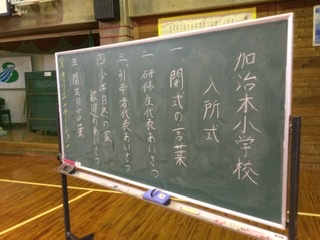 加治木小学校
入所式
一 開式の言葉
二 研修生代表あいさつ
三 引率者代表あいさつ
四 少年自然の家
歓迎のあいさつ
五 閉式の言葉